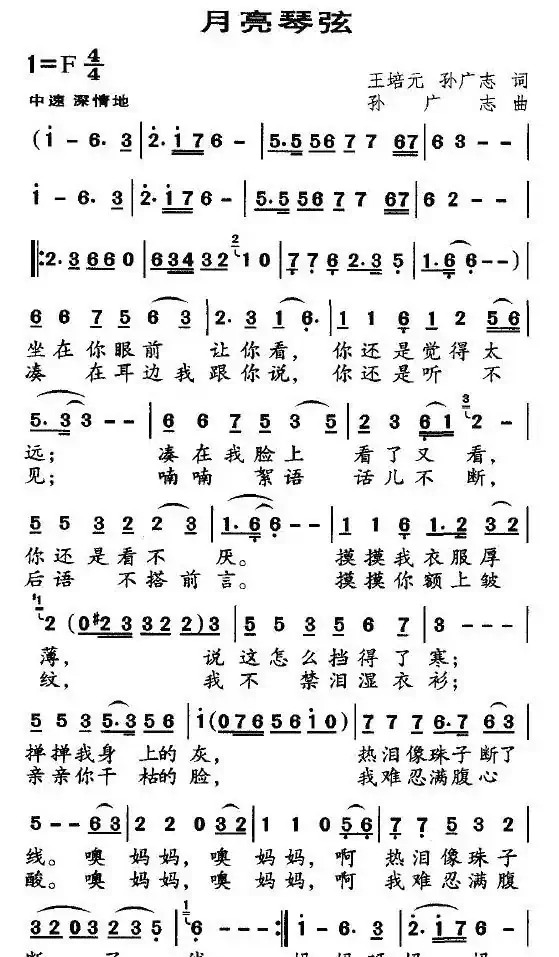 月亮琴弦
1=F 4/4
王培元 孙广志 词
中速 深情地
孙广志 曲
(i - 6. 3 | 2. i 7 6 - | 5.5 5 6 7 7 6 7 | 6 3 - - |
i - 6. 3 | 2. i 7 6 - | 5.5 5 6 7 7 6 7 | 6 2 - - |
‖: 2. 3 6 6 0 | 6 3 4 3 2 1 0 | 7 7 6 2. 3 5 | 1. 6 6 - - )
6 6 7 5 6 3 | 2. 3 1 6. | 1 1 6 1 2 5 6 |
坐在你眼前 让你看, 你还是觉得太
凑 在耳边我跟你说, 你还是听 不
5. 3 3 - - | 6 6 7 5 3 5 | 2 3 6 1 2 - |
远; 凑在我脸上 看了又看,
见; 喃喃 絮语 话儿不断,
5 5 3 2 2 3 | 1. 6 6 - - | 1 1 6 1. 2 3 2 |
你还是看不 厌。 摸摸我衣服厚
后语 不搭前言。 摸摸你额上皱
2 (0 #2 3 3 2 2) 3 | 5 5 3 5 6 7 | 3 - - - |
薄, 说这怎么挡得了寒;
纹, 我不 禁泪湿衣衫;
5 5 3 5. 3 5 6 | i (0 7 6 5 6 i 0) | 7 7 7 6. 7 6 3 |
掸掸我身 上的灰, 热泪像珠子断了
亲亲你干 枯的脸, 我难忍满腹心
5 - - 6 3 | 2 2 0 3 2 | 1 1 0 5 6 | 7 7 5 3 2 |
线。噢妈妈,噢妈妈,啊 热泪像珠子
酸。噢妈妈,噢妈妈,啊 我难忍满腹
3 2 0 3 2 3 5 | 6 - - - :‖ i - 6. 3 | 2. i 7 6 - |